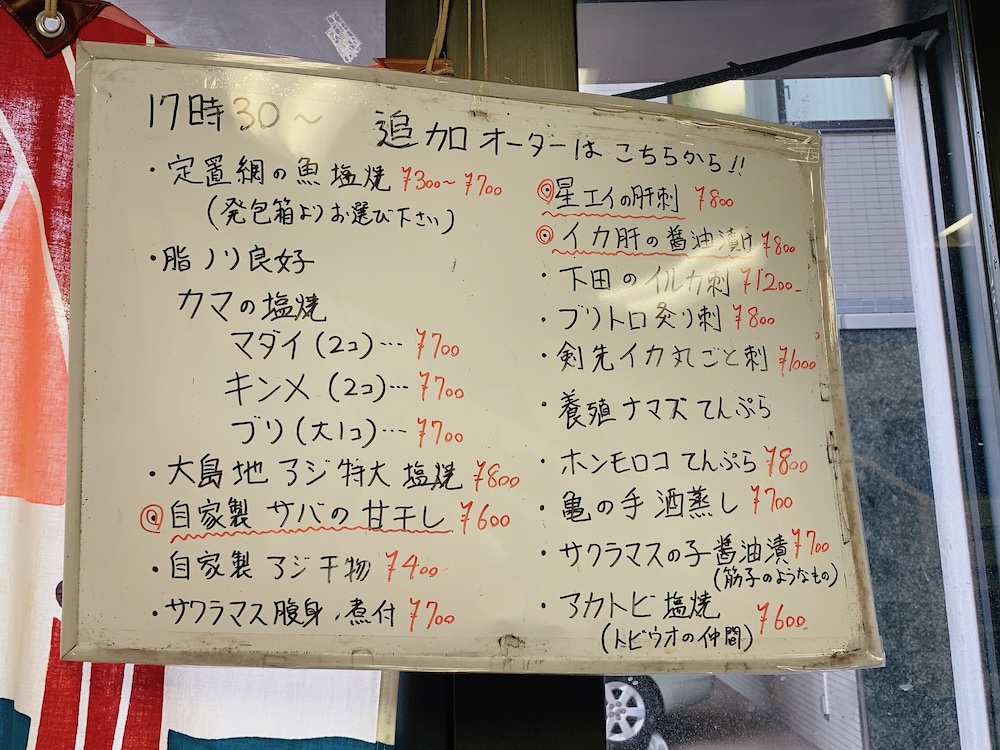 17時30〜 追加オーダーはこちらから!!
・定置網の魚塩焼 ¥300〜¥700
(発包箱よりお選び下さい)
・脂ノリ良好
カマの塩焼
マダイ(2コ)… ¥700
キンメ(2コ)… ¥700
ブリ(大1コ)… ¥700
・大島地アジ特大塩焼 ¥800
◎自家製サバの甘干し ¥600
・自家製アジ干物 ¥400
・サクラマス腹身ノ煮付 ¥700
◎星エイの肝刺 ¥800
◎イカ肝の醤油漬け ¥800
・下田のイルカ刺 ¥1200-
・ブリトロ炙り刺 ¥800
・剣先イカ丸ごと刺 ¥1000
・養殖ナマズてんぷら
・ホンモロコてんぷら ¥800
・亀の手酒蒸し ¥700
・サクラマスの子醤油漬 ¥700
(筋子のようなもの)
・アカトビ塩焼 ¥600
(トビウオの仲間)